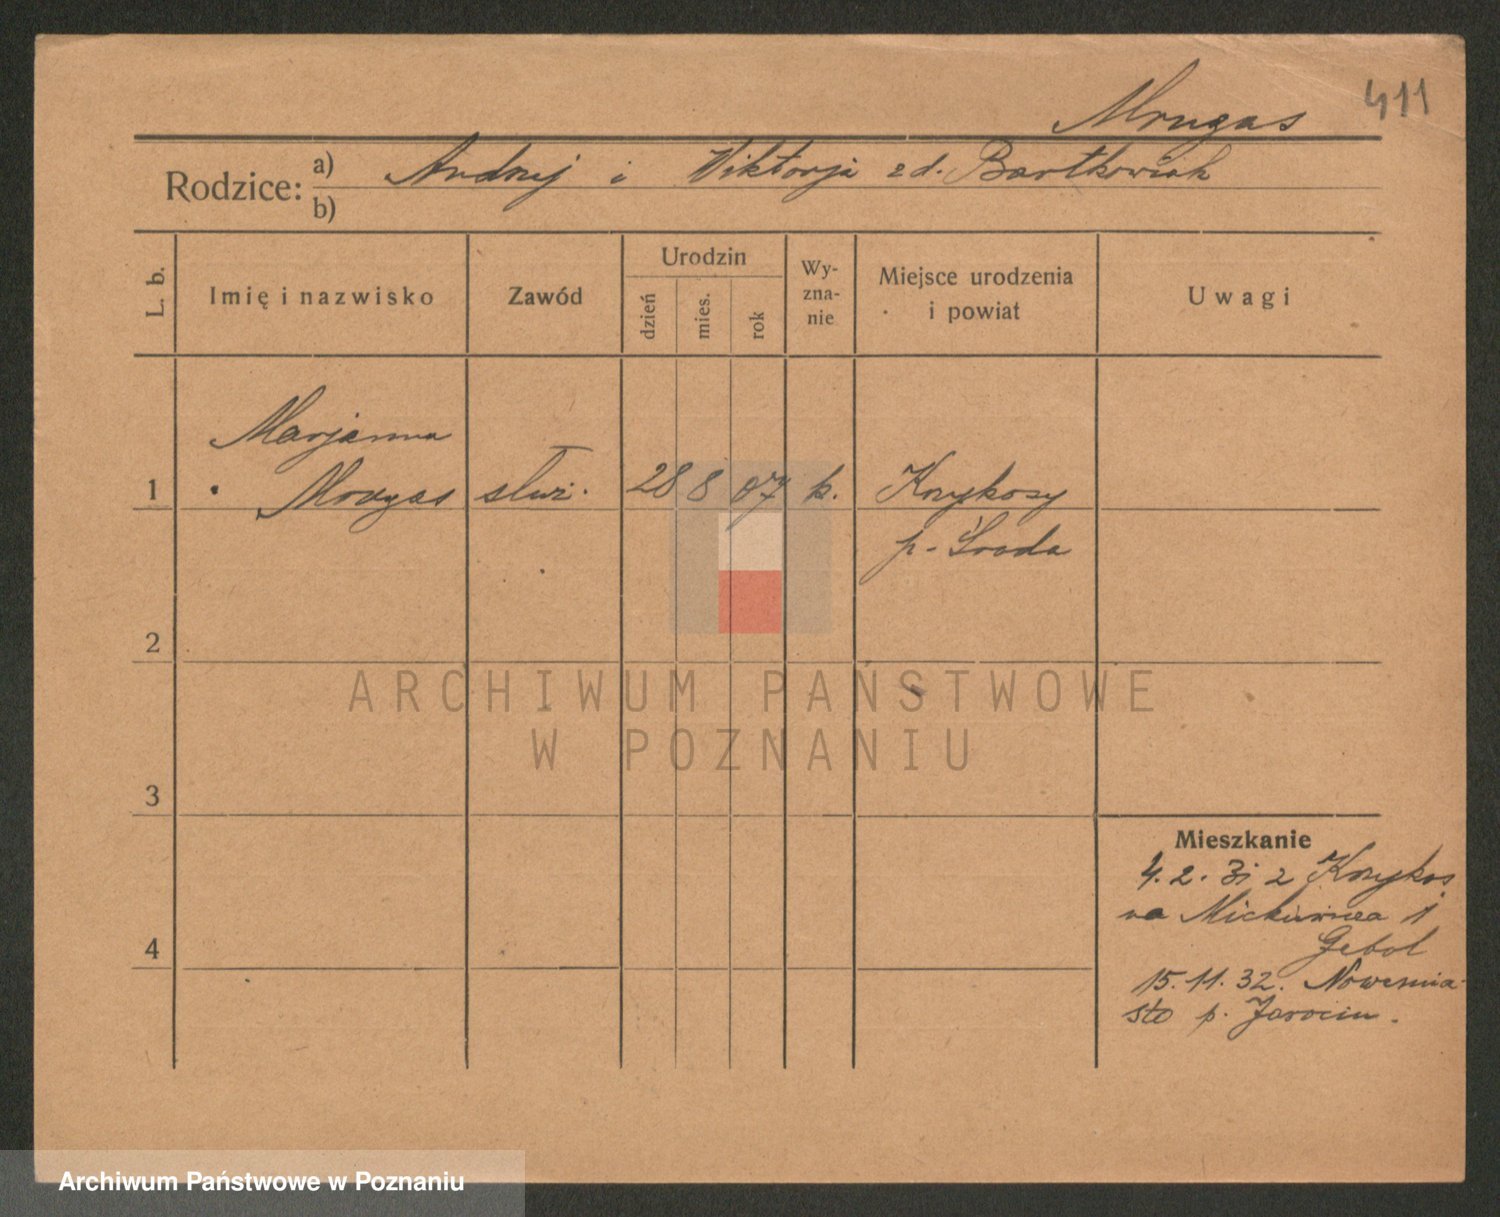 Mrugas
411
Rodzice: a) Andrzej i Wiktorja zd. Bartkowiak
b)
L. b.
Imię i nazwisko
Zawód
Urodzin
dzień
mies.
rok
Wy-
zna-
nie
Miejsce urodzenia
i powiat
Uwagi
Marjanna
1 Mrugas służ. 28 8 07 k. Krzykosy
p. Środa
2
ARCHIWUM PAŃSTWOWE
W POZNANIU
3
Mieszkanie
4. 2. 31 z Krzykos
na Mickiewicza 1
4
15. 11. 32. Nowemia-
sto p. Jarocin.
Archiwum Państwowe w Poznaniu